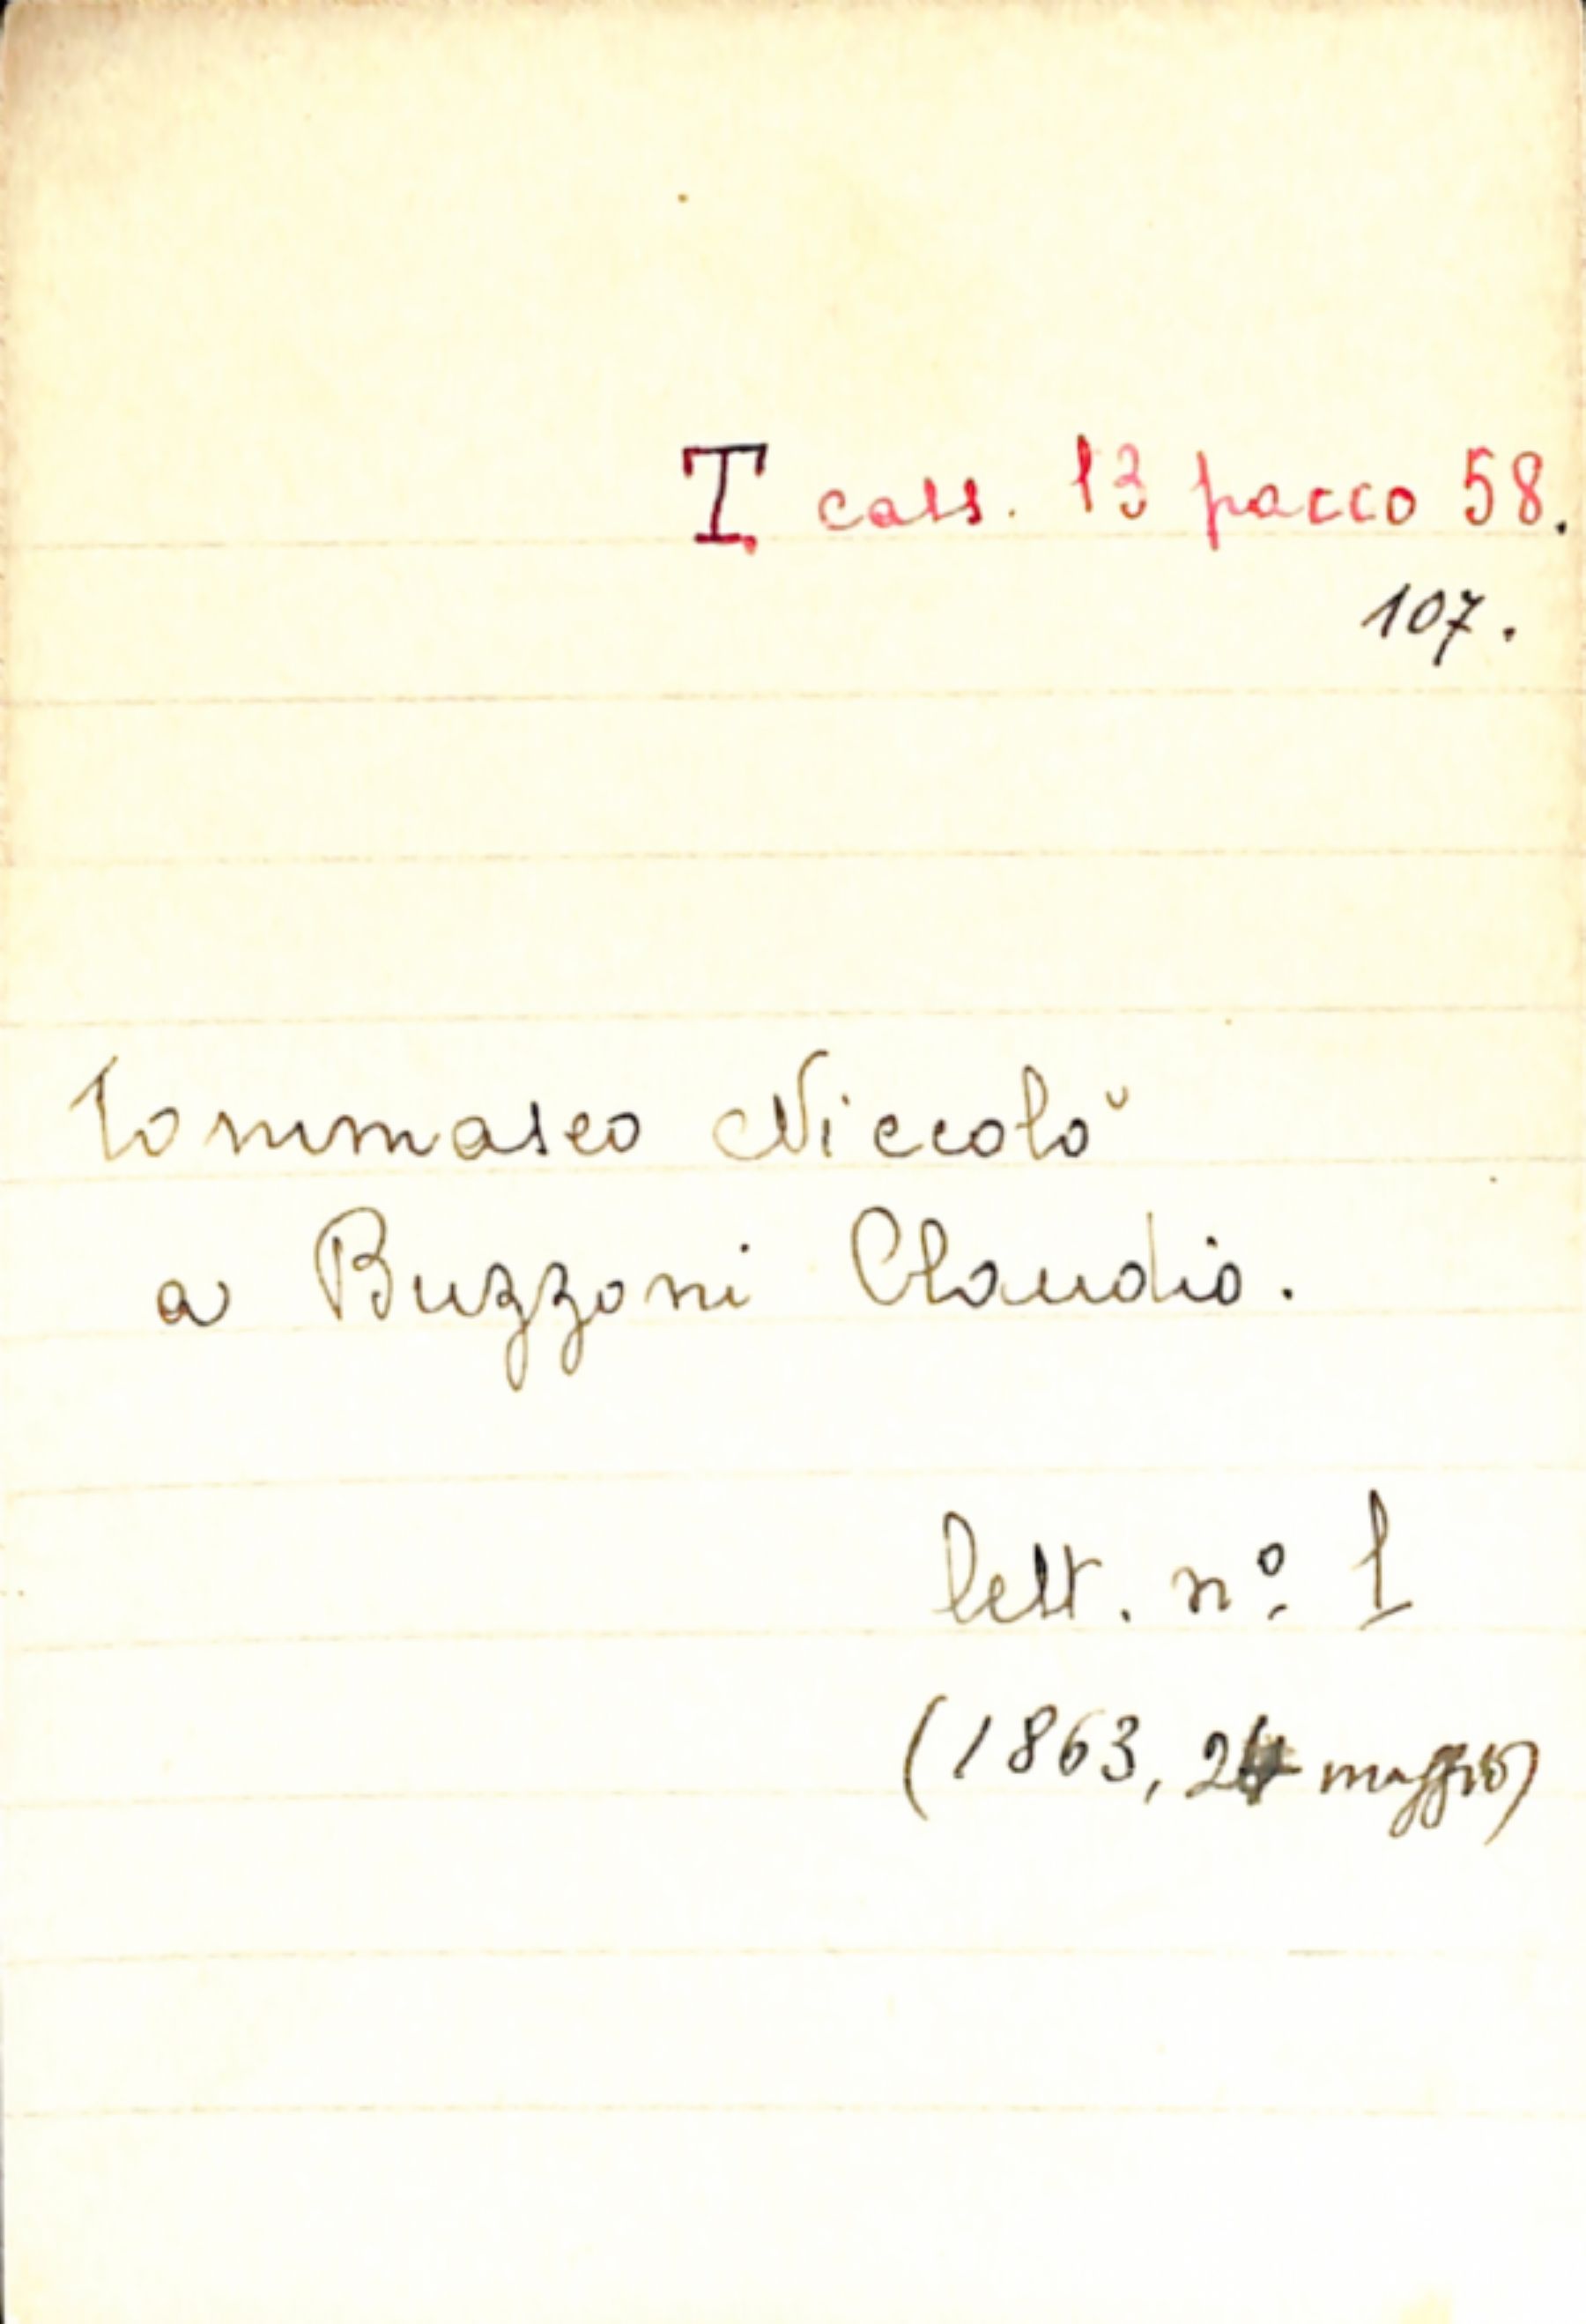 T cass. 13 pacco 58.
107.
Tommaseo Niccolò
a Buzzoni Claudio.
lett. n.º 1
(1863, 24 maggio)